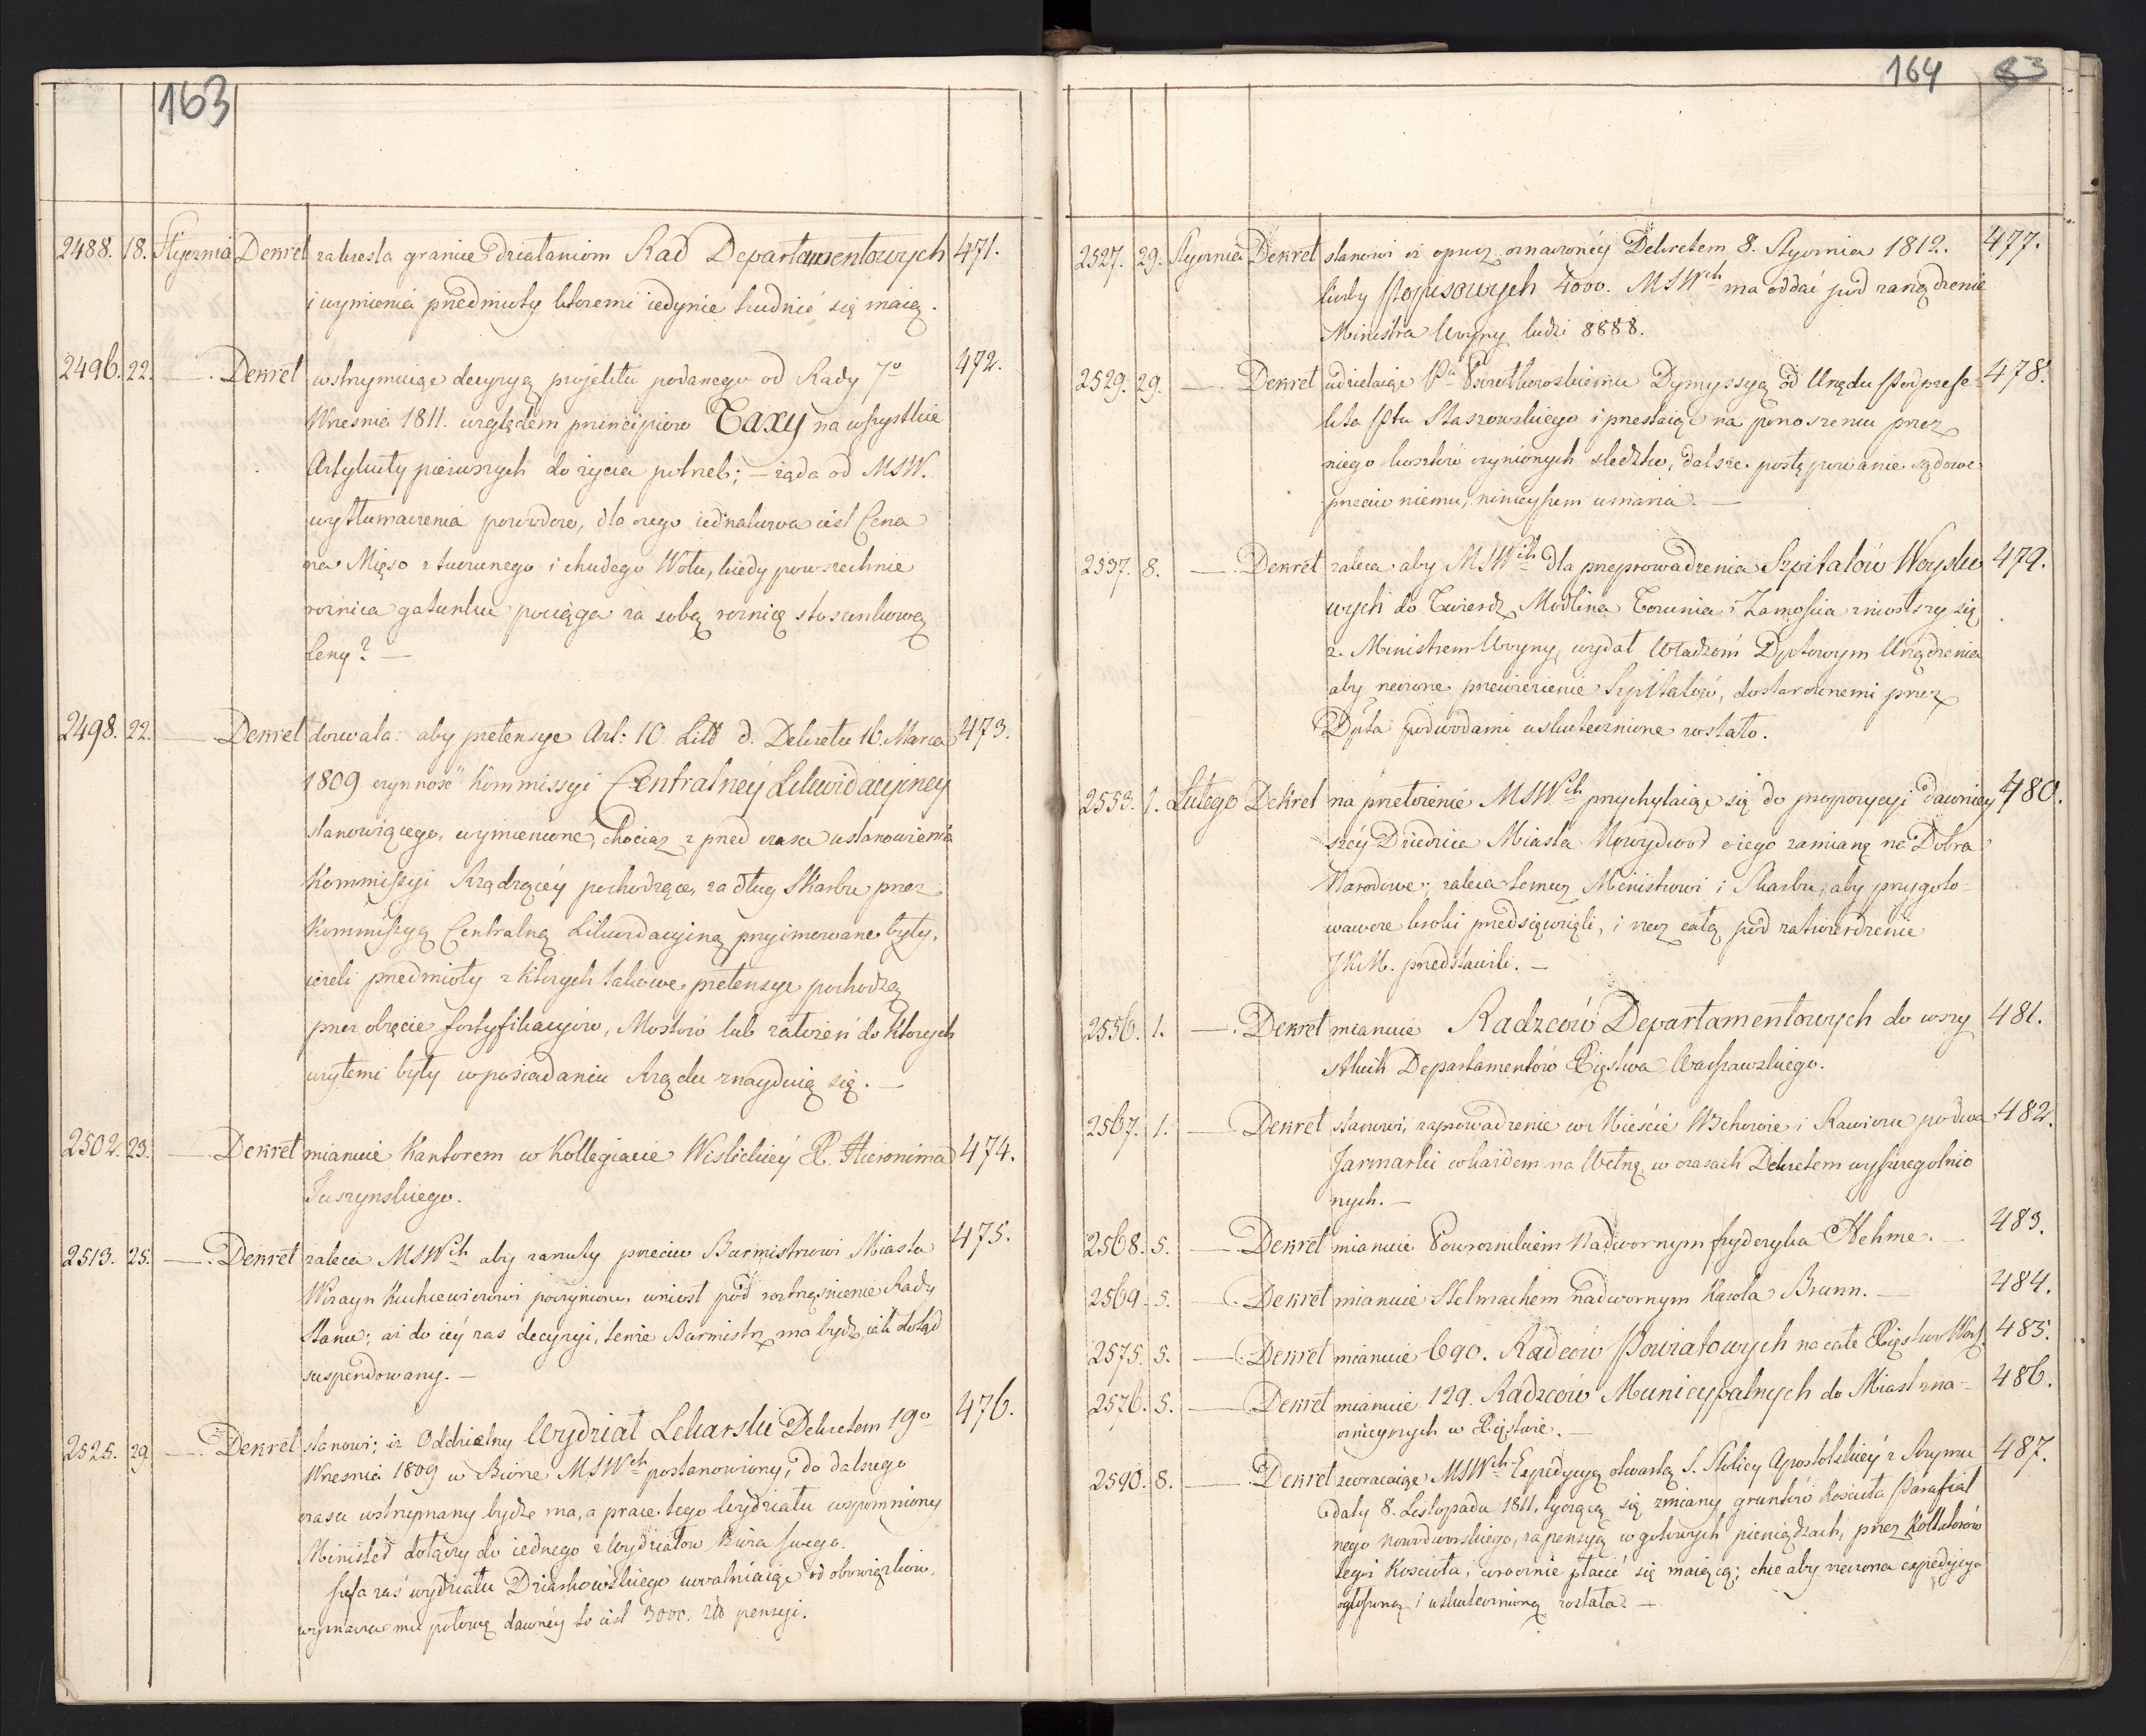 163
2488. 18. Stycznia Dekret zakresla granice działaniom Rad Departamentowych 471.
i wymienia przedmioty ktoremi iedynie trudnić się maią.
2496. 22. — . Dekret wstrzymuiąc decyzyą projektu podanego od Rady 7o 472.
Wrzesnia 1811. względem principiow Taxy na wszystkie
Artykuły pierwszych do życia potrzeb; — żąda od MSW.
wytłumaczenia powodow, dla czego iednakowa iest Cena
na Mięso z tucznego i chudego Wołu, kiedy powszechnie
roznica gatunku pociąga za sobą roznicę stosunkową
Ceny? —
2498. 22. — Dekret dozwala: aby pretensye Art: 10 Litt d. Dekretu 16. Marca 473.
1809 czynność Kommissyi Centralney Likwidacyiney
stanowiącego, wymienione, chociaz z przed czasu ustanowienia
Kommissyi Rządzącéy pochodzące, za dług Skarbu przez
Kommissyą Centralną Likwidacyiną przyimowane były,
ieżeli przedmioty z ktorych takowe pretensye pochodzą
przez objęcie fortyfikacyiow, Mostow lub założeń do ktorych
użytemi były w posiadaniu Rządu znayduią się. —
2502. 23. — . Dekret mianuie Kantorem w Kollegiacie Wislickiéy X. Hieronima 474.
Juszynskiego.
2513. 25. — . Dekret zaleca MSWch aby zarzuty przeciw Burmistrzowi Miasta 475.
Wizayn Kuchcewiczowi poczynione, wniost pod roztrząśnienie Rady
Stanu; aż do iéy zas decyzyi, tenże Burmistrz ma bydź iak dotąd
suspendowany. —
2525. 29. — . Dekret stanowi; iz Oddzielny Wydział Lekarski Dekretem 19go 476.
Wrzesnia 1809 w Biorze MSWch postanowiony, do dalszego
czasu wstrzymany bydź ma, a prace tego Wydziału wspomniony
Minister dołączy do iednego z Wydziałow Biura swego.
Szefa zaś wydziału Dziarkowskiego uwalniaiąc od obowiązkow,
wyznacza mu połowę dawnéy to iest 3000. Złł pensyi.
164 83
2527. 29. Stycznia Dekret stanowi iż oprocz oznaczonéy Dekretem 8. Stycznia 1812. 477.
liczby Popisowych 4000. MSWch ma oddać pod zarządzenie
Ministra Woyny ludzi 8888.
2529. 29. — Dekret udzielaiąc Pu Piwotkowskiemu Dymyssyą od Urzędu Podprefe- 478.
kta Ptu Staszowskiego i przestaiąc na ponoszeniu przez
niego kosztów czynionych sledztw, dalsze postępowanie sądowe
przeciw niemu, ninieyszem umarza. —
2537. 8. — . Dekret zaleca aby MSWch dla przeprowadzenia Szpitalow Woysko 479.
wych do Twierdz Modlina Torunia i Zamoscia zniosłszy się
z Ministrem Woyny, wydał Władzom Dptowym Urządzenia
aby rzeczone przewiezienie Szpitalow, dostarczonemi przez
Dpta podwodami uskutecznione zostało.
2553. 1. Lutego Dekret na przełożenie MSWch przychylaiąc się do propozycyi dawniey 480.
széy Dziedzica Miasta Nowydwor o iego zamianę na Dobra
Narodowe; zaleca temuz Ministrowi i Skarbu, aby przygoto-
wawcze kroki przedsięwzięli, i rzecz całą pod zatwierdzenie
JKM. przedstawili. —
2556. 1. — . Dekret mianuie Radzców Departamentowych do wszy 481.
stkich Departamentów Xięstwa Warszawskiego.
2567. 1. — Dekret stanowi, zaprowadzenie w Miescie Wschowie i Rawiczu po dwa 482.
Jarmarki w kazdem na Wełnę w czasach Dekretem wyszczegolnio
nych. —
2568. 5. — Dekret mianuie Powroznikiem Nadwornym Fryderyka Hehme. — 483.
2569. 5. — . Dekret mianuie Stelmachem nadwornym Karola Brunn. — 484.
2575. 5. — . Dekret mianuie 690. Radców Powiatowych na całe Xięstwo Wars. 485.
2576. 5. — Dekret mianuie 129. Radzców Municypalnych do Miast zna- 486.
cznieyszych w Xięstwie. —
2590. 8. — . Dekret zwracaiąc MSWch Expedycyą otwartą S. Stolicy Apostolskiéy z Rzymu 487.
daty 8. Listopada 1811, tyczącą się zmiany gruntów Kościoła Parafial
nego Nowodworskiego, za pensyą w gotowych pieniądzach, przez Kollatorów
tegoż Kościoła, corocznie płacić się maiącą; chce aby rzeczona expedycya
ogłoszoną i uskutecznioną została. —